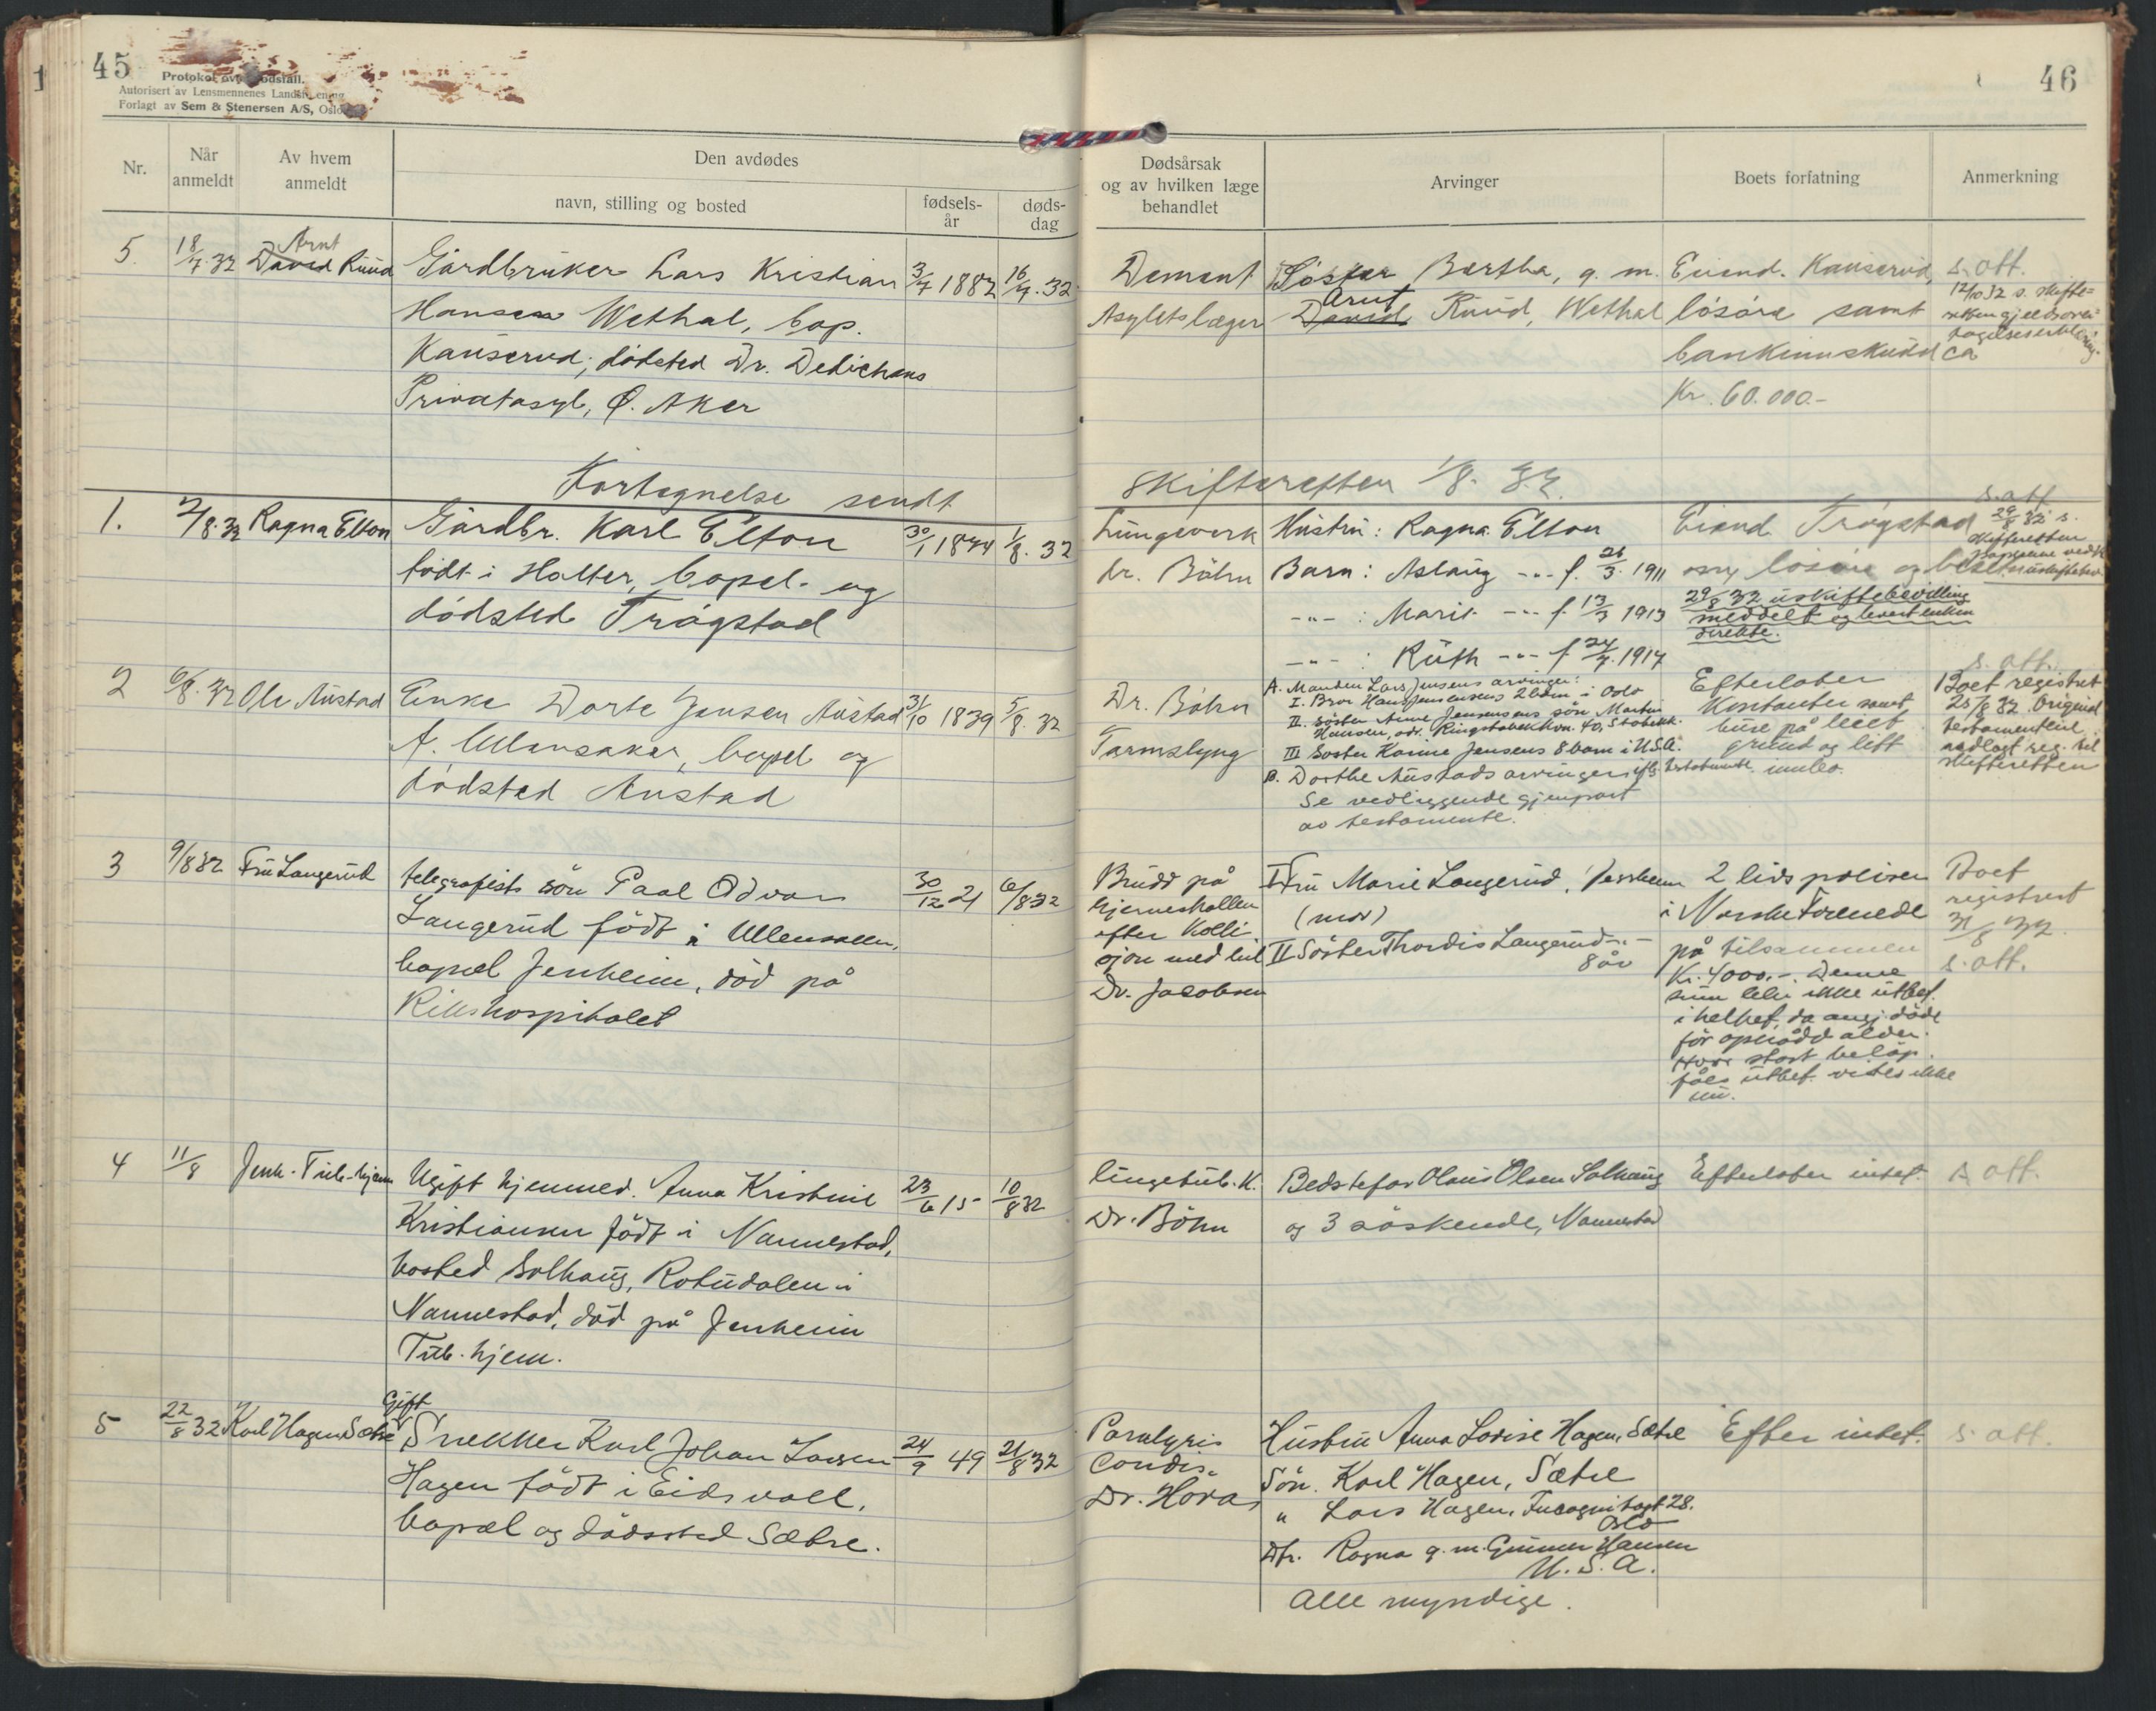 45
Protokol over dødsfall.
Autorisert av Lensmennenes Landsforening
Forlagt av Sem & Stenersen A/S, Oslo
Nr.
Når anmeldt
Av hvem anmeldt
Den avdødes
navn, stilling og bosted
fødselsår
dødsdag
5. 18/7.32 Arnt David Ruud Gårdbruker Lars Kristian 3/7 1882 16/7.32
Hansen Wethal, bop.
Kauserud; dödsted Dr. Dedichens
Privatasyl, Ö. Aker
Fortegnelse sendt
1. 2/8.32 Ragna Elton Gårdbr. Karl Elton 30/1 1874 1/8.32
födt i Holter, bopel og
dödsted Trögstad
2 6/8.32 Ole Austad Enke Dorte Jensen Austad 31/10 1839 5/8.32
f. Ullensaker, bopel og
dödsted Austad
3 9/8 32 Fru Langerud telegrafists sön Paal Odvar 30/12 21 6/8 32
Langerud födt i Ullensaker,
bopæl Jessheim, död på
Rikshospitalet
4 11/8 Jessh. Tub-hjem Ugift hjemmev. Anna Kristine 23/6 15 10/8 32
Kristiansen födt i Nannestad,
bosted Solhaug, Rotudalen i
Nannestad, död på Jessheim
Tub. hjem.
Gift
5 22/8 32 Karl Hagen Sætre Snekker Karl Johan Larsen 24/9 49 21/8 32
Hagen födt i Eidsvoll,
bopæl og dödssted Sætre.
46
Dødsårsak
og av hvilken læge
behandlet
Arvinger
Boets forfatning
Anmerkning
Dement Söster Bertha, g. m. Eiend. Kauserud, s. att.
Asylets læger Arnt David Ruud, Wethal lösöre samt
12/10 32 s. skifte=
retten gjeldsover=
tagelseserklæring.
bankinnskudd ca
Kr. 60.000.-
Skifteretten 1/8. 32.
Lungeverk Hustru: Ragna Elton Eiend. Trögstad s. att
dr. Böhn Barn: Aslaug -"- f. 26/3. 1911 lösöre og
29/8 32 s.
skifteretten
-"- : Marit -"- f. 13/3 1913
29/8 32 uskiftebevilling
meddelt og levert enken
direkte.
-"- : Ruth -"- f 24/7. 1917
Dr. Böhn
Tarmslyng
A. Manden Lars Jensens arvinger:
I. Bror Hans Jensens 2 barn i Oslo
II. Söster Anne Jensens sön Martin
Hansen, adr. Ringstabekkvn. 40, Stabekk.
III Söster Karine Jensens 8 barn i U.S.A.
B. Dorthe Austads arvinger iflg. testamente.
Se vedliggende gjenpart
av testamente.
Efterlater
kontanter samt
huse på leiet
grund og litt
innbo.
s. att.
Boet registret
25/8 32. Original
testamentet
vedlagt reg. til
skifteretten
Brudd på
hjerneskallen
efter kolli-
sjon med bil
Dr. Jacobsen
I Fru Marie Langerud, Jessheim
(mor)
II Söster Thordis Langerud -"-
8 år
2 livspoliser
i Norske Forenede
på tilsammen
Kr. 4000.-. Denne
sum blir ikke utbet.
i helhet, da angj. döde
för opnådd alder.
Hvor stort belöp
fåes utbet. vites ikke
nu.
Boet
registrert
31/8 32.
s. att.
lungetub. K. Bedstefar Olaus Olsen Solhaug Efterlater intet. s att.
Dr. Böhn og 3 söskende, Nannestad
Paralysis Hustru Anna Lovise Hagen, Sætre Efter intet. s. att.
Cordis. Sön Karl Hagen, Sætre
Dr. Hovas " Lars Hagen, Incognitogt 28.
Oslo
Dtr. Ragna g. m. Gunner Hansen
U. S. A.
Alle myndige.